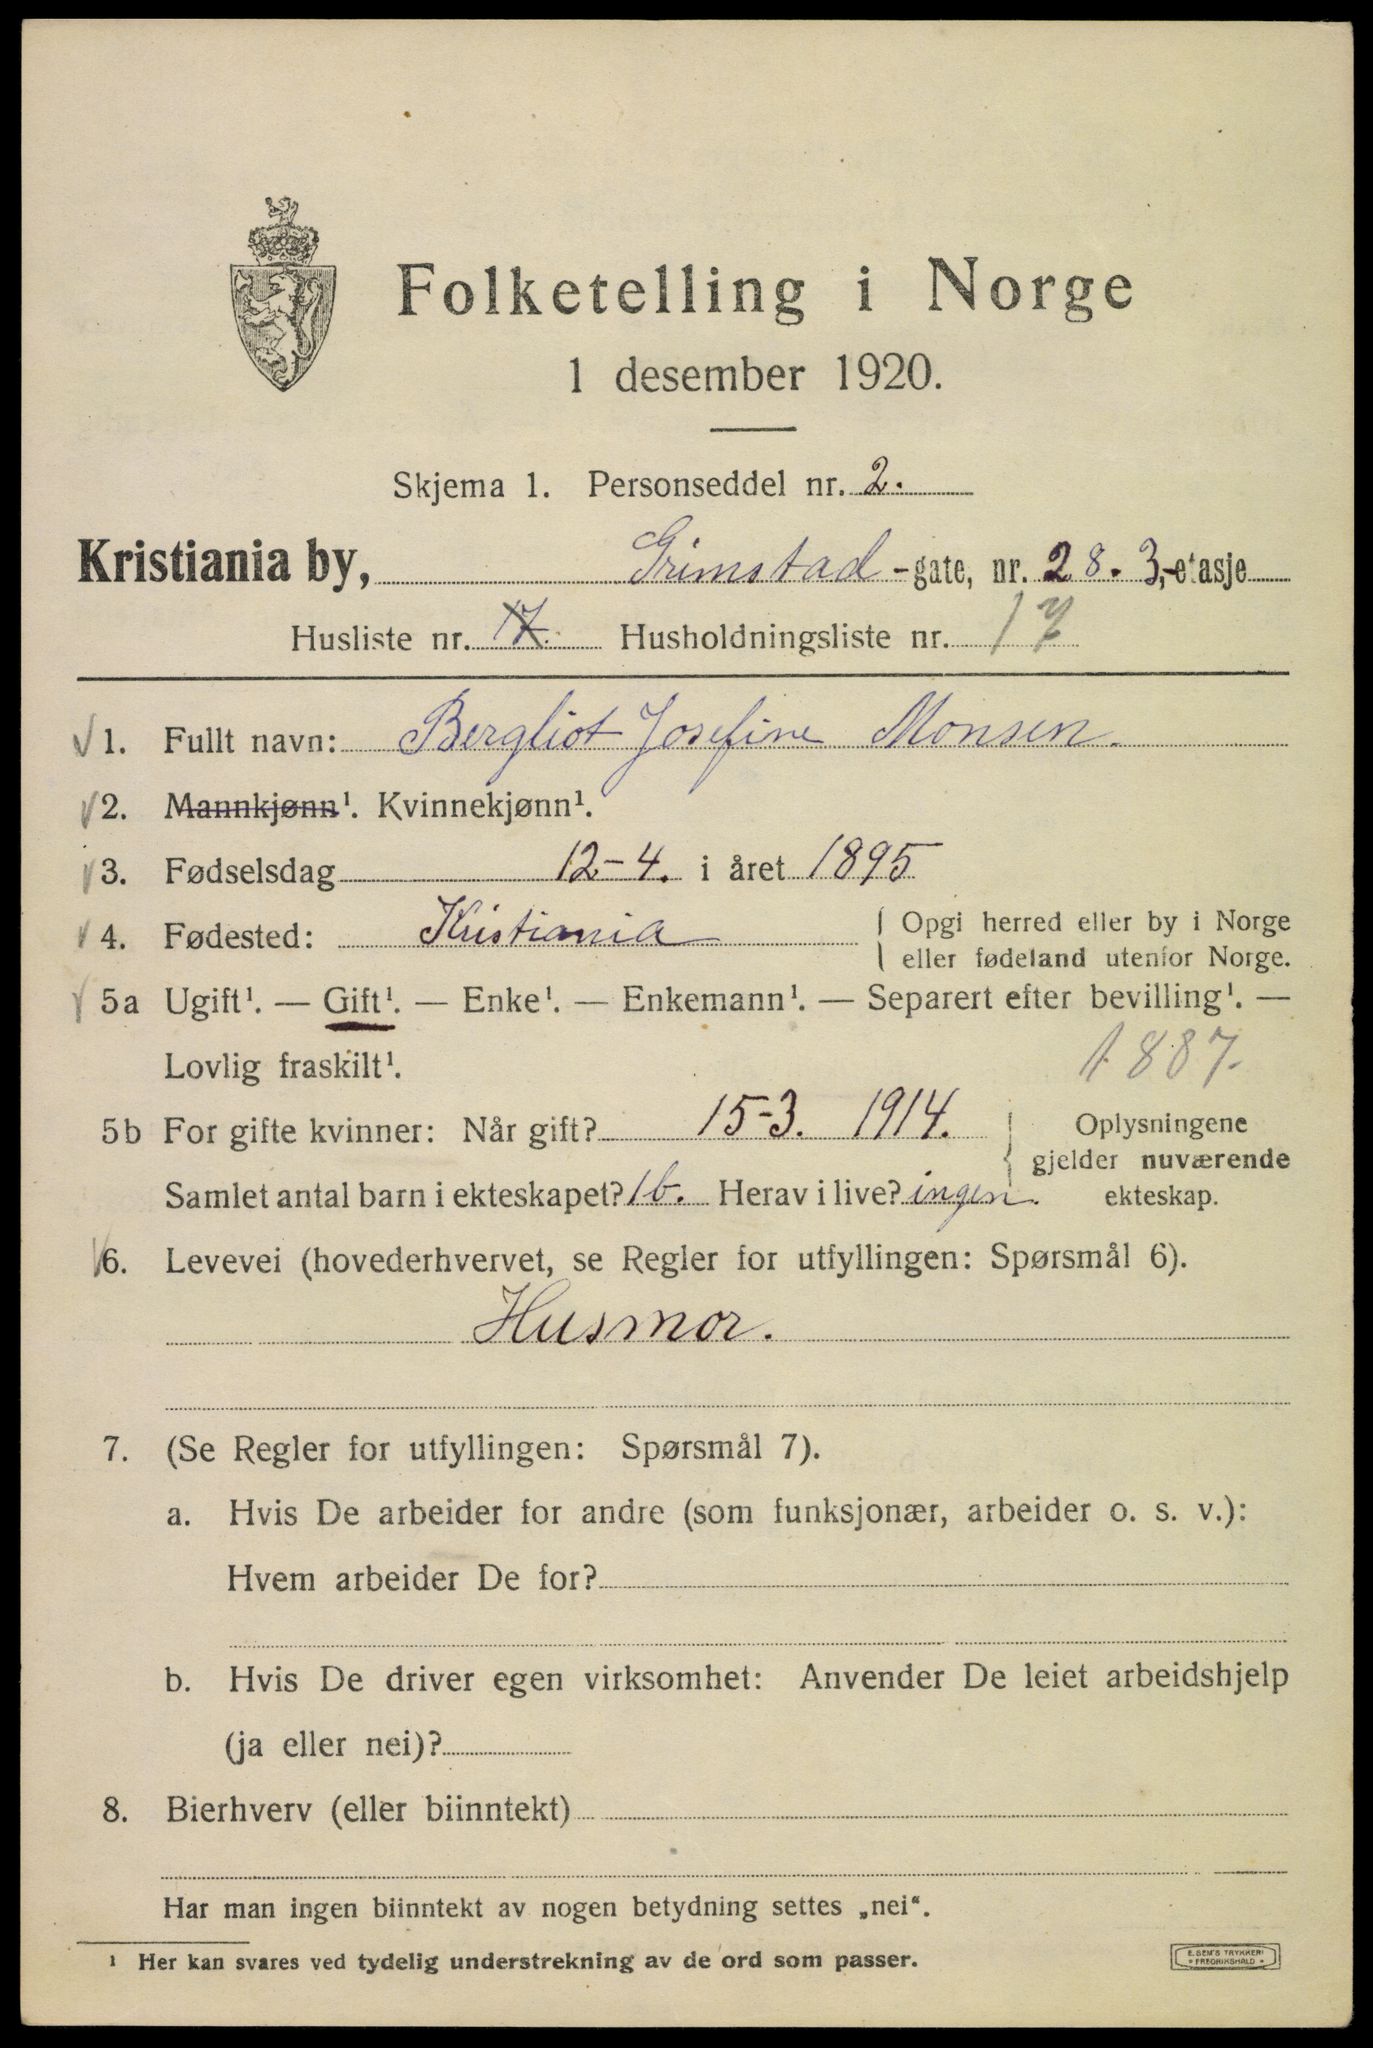 Folketelling i Norge
1 desember 1920.
Skjema 1. Personseddel nr. 2.
Kristiania by, Grimstad -gate, nr. 28. 3,-etasje
Husliste nr. 17. Husholdningsliste nr. 17
1. Fullt navn: Bergliot Josefine Monsen.
2. Mannkjønn¹. Kvinnekjønn¹.
3. Fødselsdag 12-4. i året 1895
4. Fødested: Kristiania { Opgi herred eller by i Norge
eller fødeland utenfor Norge.
5a Ugift¹. — Gift¹. — Enke¹. — Enkemann¹. — Separert efter bevilling¹. —
Lovlig fraskilt¹. 1887.
5b For gifte kvinner: Når gift? 15-3. 1914. { Oplysningene
gjelder nuværende
Samlet antal barn i ekteskapet? 1b. Herav i live? ingen. ekteskap.
6. Levevei (hovederhvervet, se Regler for utfyllingen: Spørsmål 6).
Husmor.
7. (Se Regler for utfyllingen: Spørsmål 7).
a. Hvis De arbeider for andre (som funksjonær, arbeider o. s. v.):
Hvem arbeider De for?
b. Hvis De driver egen virksomhet: Anvender De leiet arbeidshjelp
(ja eller nei)?
8. Bierhverv (eller biinntekt)
Har man ingen biinntekt av nogen betydning settes „nei“.
¹ Her kan svares ved tydelig understrekning av de ord som passer.
E. SEM'S TRYKKERI
• FREDRIKSHALD •